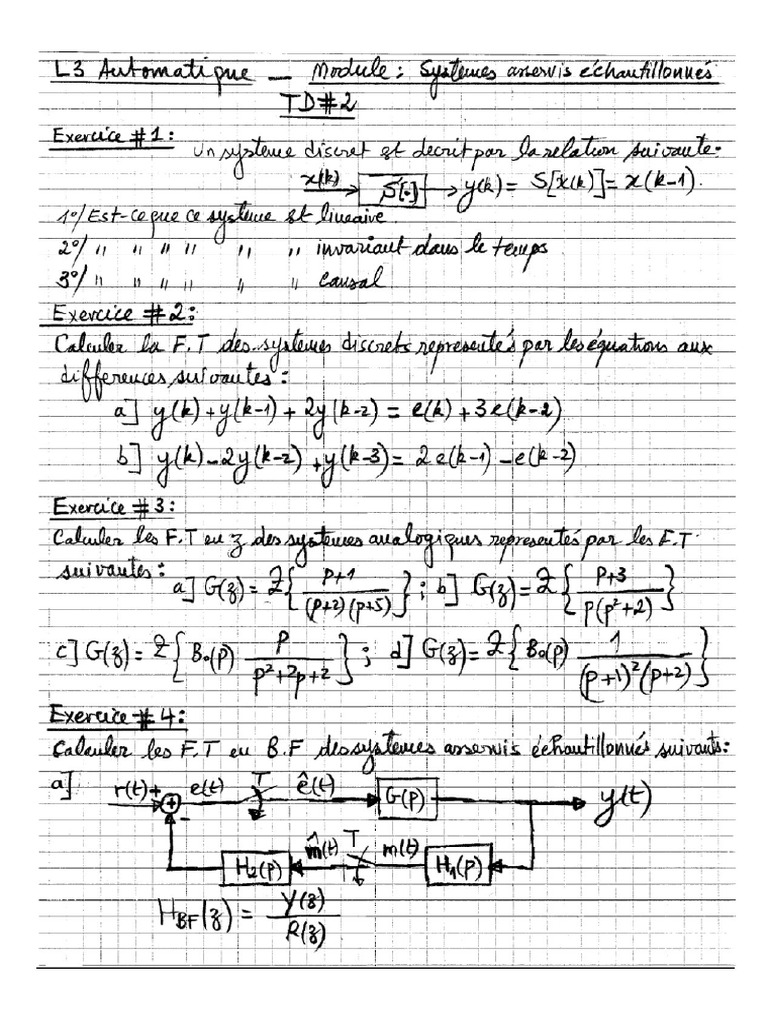 L3 Automatique — Module: Systemes asservis échantillonnés
TD#2
Exercice #1:
Un systeme discret est decrit par la relation suivante:
x(k) S[·] y(k) = S[x(k)] = x(k-1).
1°/ Est-ce que ce systeme est lineaire
2°/ " " " " " " invariant dans le temps
3°/ " " " " " " causal
Exercice #2:
Calculer la F.T des systemes discrets representés par les équations aux
differences suivantes:
a] y(k) + y(k-1) + 2y(k-2) = e(k) + 3e(k-2)
b] y(k) - 2y(k-2) + y(k-3) = 2e(k-1) - e(k-2)
Exercice #3:
Calculer les F.T en z des systemes analogiques representés par les F.T
suivantes: a] G(z) = Z{ p+1 / (p+2)(p+5) }; b] G(z) = Z{ p+3 / p(p²+2) }
c] G(z) = Z{ B₀(p) p / p²+2p+2 }; d] G(z) = Z{ B₀(p) 1 / (p+1)²(p+2) }
Exercice #4:
Calculer les F.T en B.F des systemes asservis échantillonnés suivants:
a] r(t) + e(t) T ê(t) G(p) y(t)
-
H₂(p) m̂(t) T m(t) H₁(p)
H_BF(z) = Y(z) / R(z)